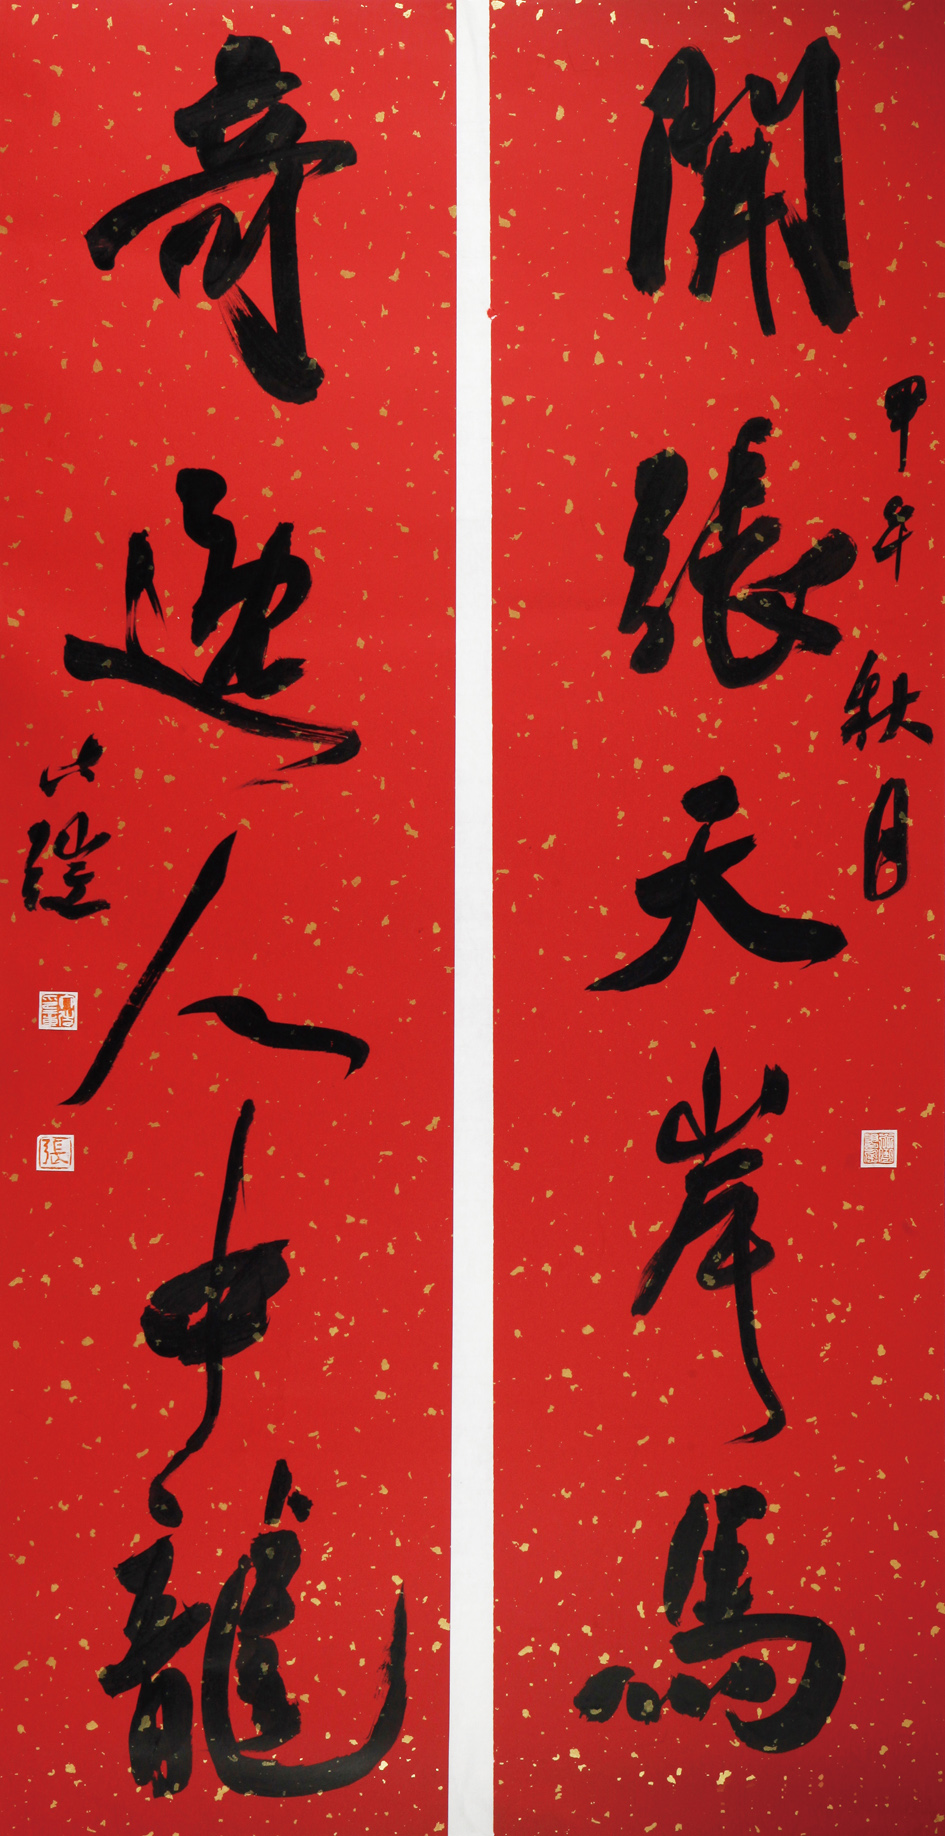 開張天岸馬
甲午秋月
奇逸人中龍
張